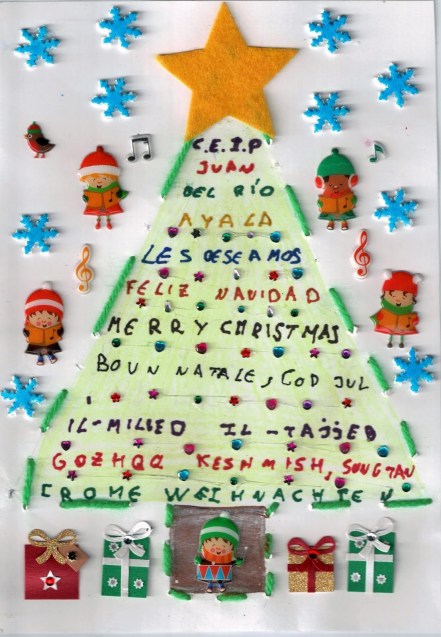 C.E.I.P
JUAN
DEL RÍO
AYALA
LES DESEAMOS
FELIZ NAVIDAD
MERRY CHRISTMAS
BOUN NATALE, GOD JUL
IL-MILIED IL-TAJJEB
GOZHQQ KESNMISH, SUNGTAN
CROME WEIHNACHTEN